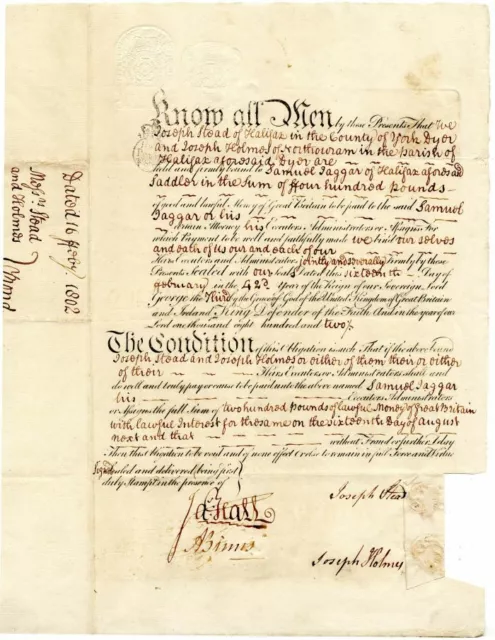 Know all Men by these Presents That We
Joseph Stead of Halifax in the County of York Dyer
and Joseph Holmes of Northouram in the Parish of
Halifax aforesaid Dyer are
held and firmly bound to Samuel Jaggar of Halifax aforesaid
Saddler in the Sum of ffour hundred Pounds
of good and lawful Money of Great Britain to be paid to the said Samuel
Jaggar or his
certain Attorney his Executors Administrators or Assigns For
which Payment to be well and faithfully made we bind our selves
and each of us our and each of our
Heirs Executors and Administrators jointly and severally Firmly by these
Presents Sealed with our seals Dated the sixteenth Day of
february in the 42d Year of the Reign of our Sovereign Lord
George the Third by the Grace of God of the United Kingdom of Great Britain
and Ireland King Defender of the Faith And in the year of our
Lord one thousand eight hundred and two
The Condition of this Obligation is such That if the above bound
Joseph Stead and Joseph Holmes or either of them their or either
of their Heirs Executors or Administrators shall and
do well and truly pay or cause to be paid unto the above named Samuel Jaggar
his Executors Administrators
or Assigns the full Sum of two hundred Pounds of lawful Money of Great Britain
with lawful Interest for the same on the sixteenth Day of august
next and that without Fraud or further Delay
Then this Obligation to be void and of none effect Or else to remain in full Force and Virtue
Signed Sealed and delivered being first
duly Stampt in the presence of
Joseph Stead
Joseph Holmes
Dated 16 feby. 1802
Messrs. Stead
and Holmes
Bond